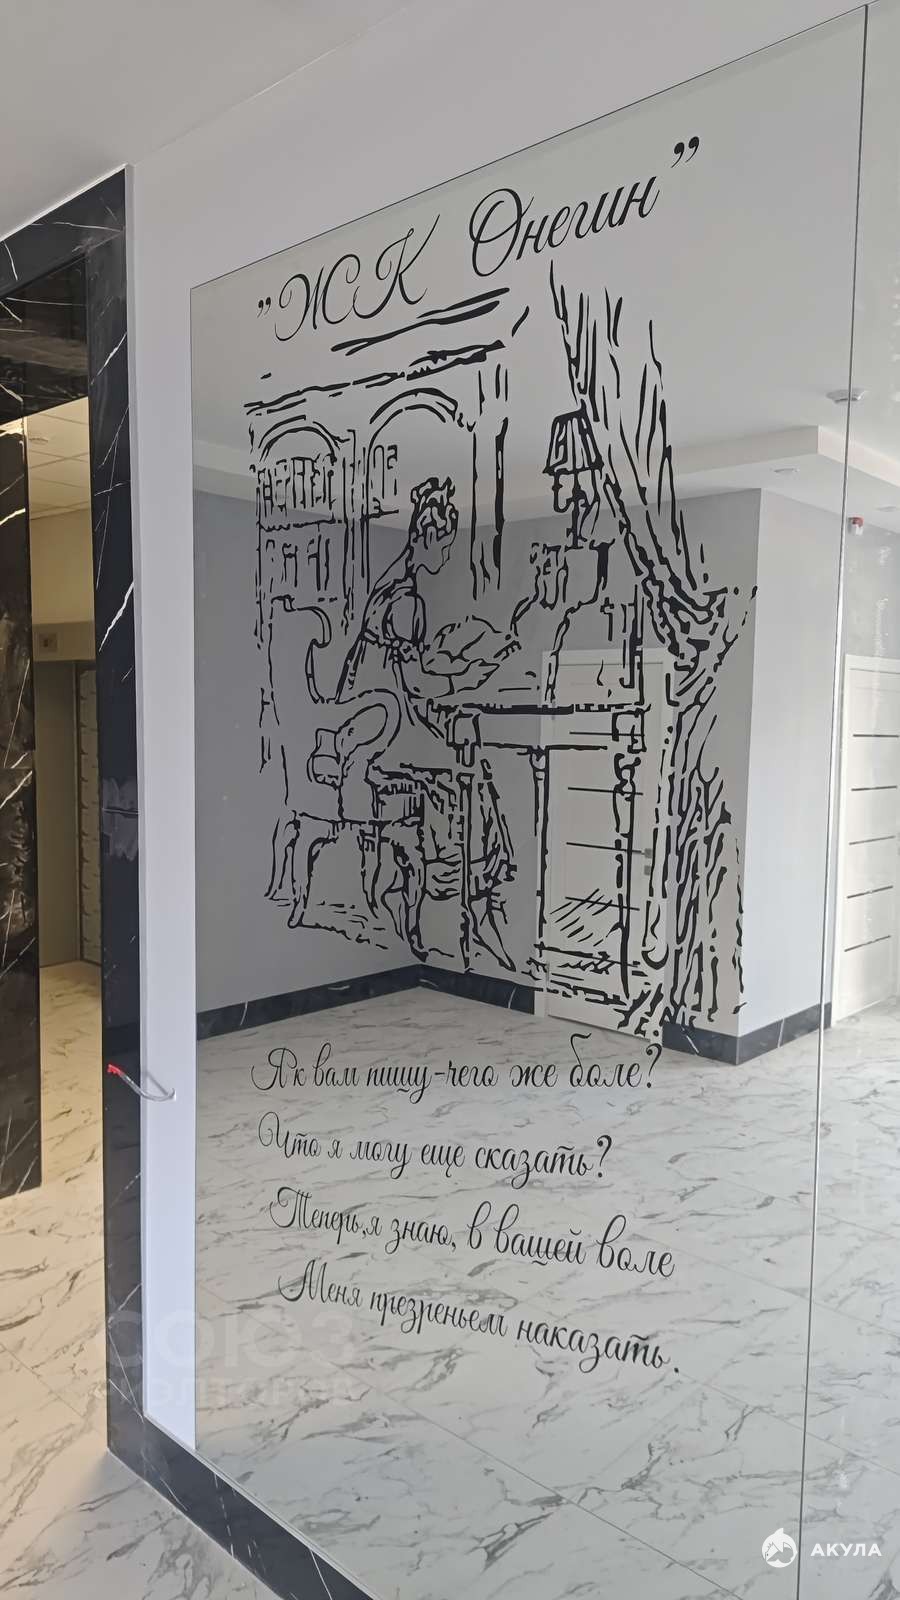 "ЖК Онегин"
Я к вам пишу-чего же боле?
Что я могу еще сказать?
Теперь,я знаю, в вашей воле
Меня презреньем наказать.
СОЮЗ
АКУЛА